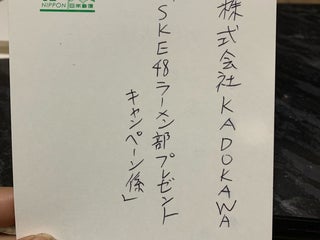 NIPPON 日本郵便
株式会社KADOKAWA
SKE48ラーメン部プレゼント
キャンペーン係」